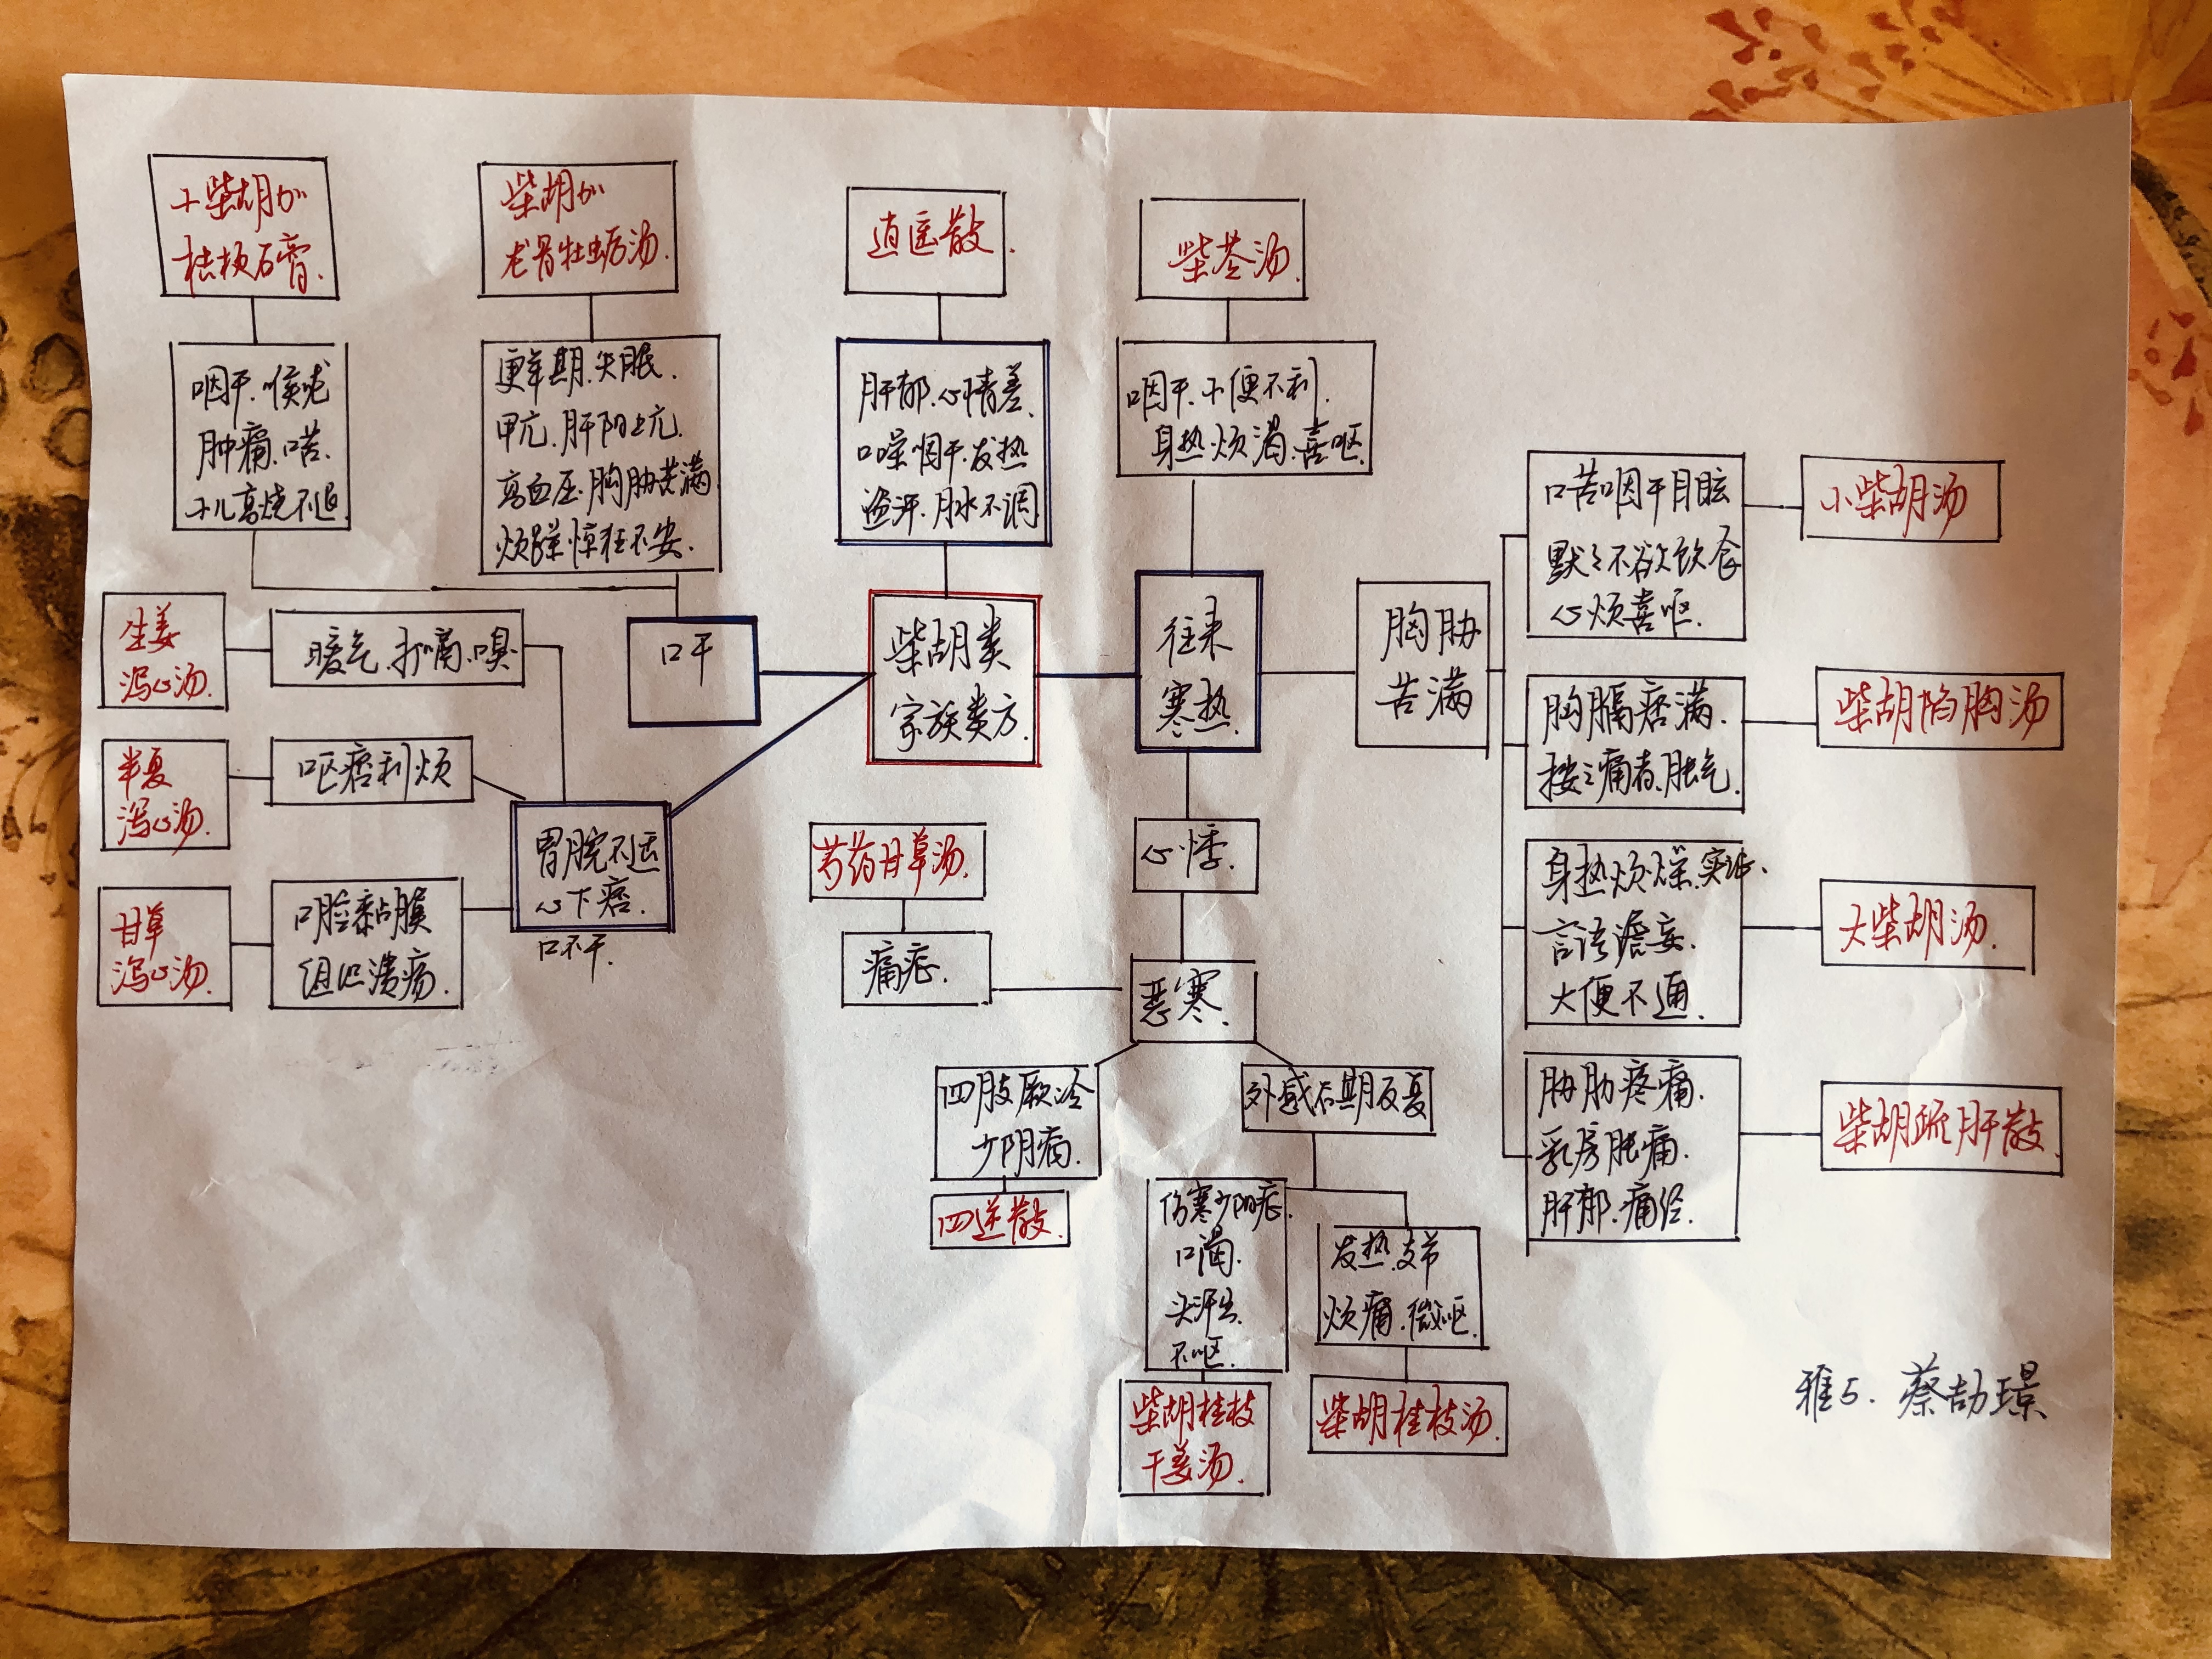 小柴胡加
桔梗石膏.
咽干.喉咙
肿痛.口苦.
小儿高烧不退
柴胡加
龙骨牡蛎汤.
更年期.失眠.
甲亢.肝阳上亢.
高血压.胸胁苦满
烦躁惊狂不安.
逍遥散.
肝郁.心情差.
口噪咽干.发热
盗汗.月水不调
柴苓汤.
咽干.小便不利.
身热烦渴.喜呕.
生姜
泻心汤.
暖气.打嗝.口臭.
半夏
泻心汤.
呕痞利烦
甘草
泻心汤.
口腔黏膜
组织溃疡.
口干
胃脘不适
心下痞.
口不干.
柴胡类
家族类方.
往来
寒热.
胸胁
苦满
口苦咽干目眩
默々不欲饮食
心烦喜呕.
小柴胡汤
胸膈痞满.
按之痛者.胀气.
柴胡陷胸汤
身热烦燥.实证.
言语谵妄.
大便不通.
大柴胡汤.
胁肋疼痛.
乳房胀痛.
肝郁.痛经.
柴胡疏肝散.
心悸.
恶寒.
芍药甘草汤.
痛症.
四肢厥冷
少阴病.
四逆散.
外感后期反复
伤寒少阳症.
口渴.
头汗出.
不呕.
柴胡桂枝
干姜汤.
发热.支节
烦痛.微呕.
柴胡桂枝汤.
雅5.蔡劼璟